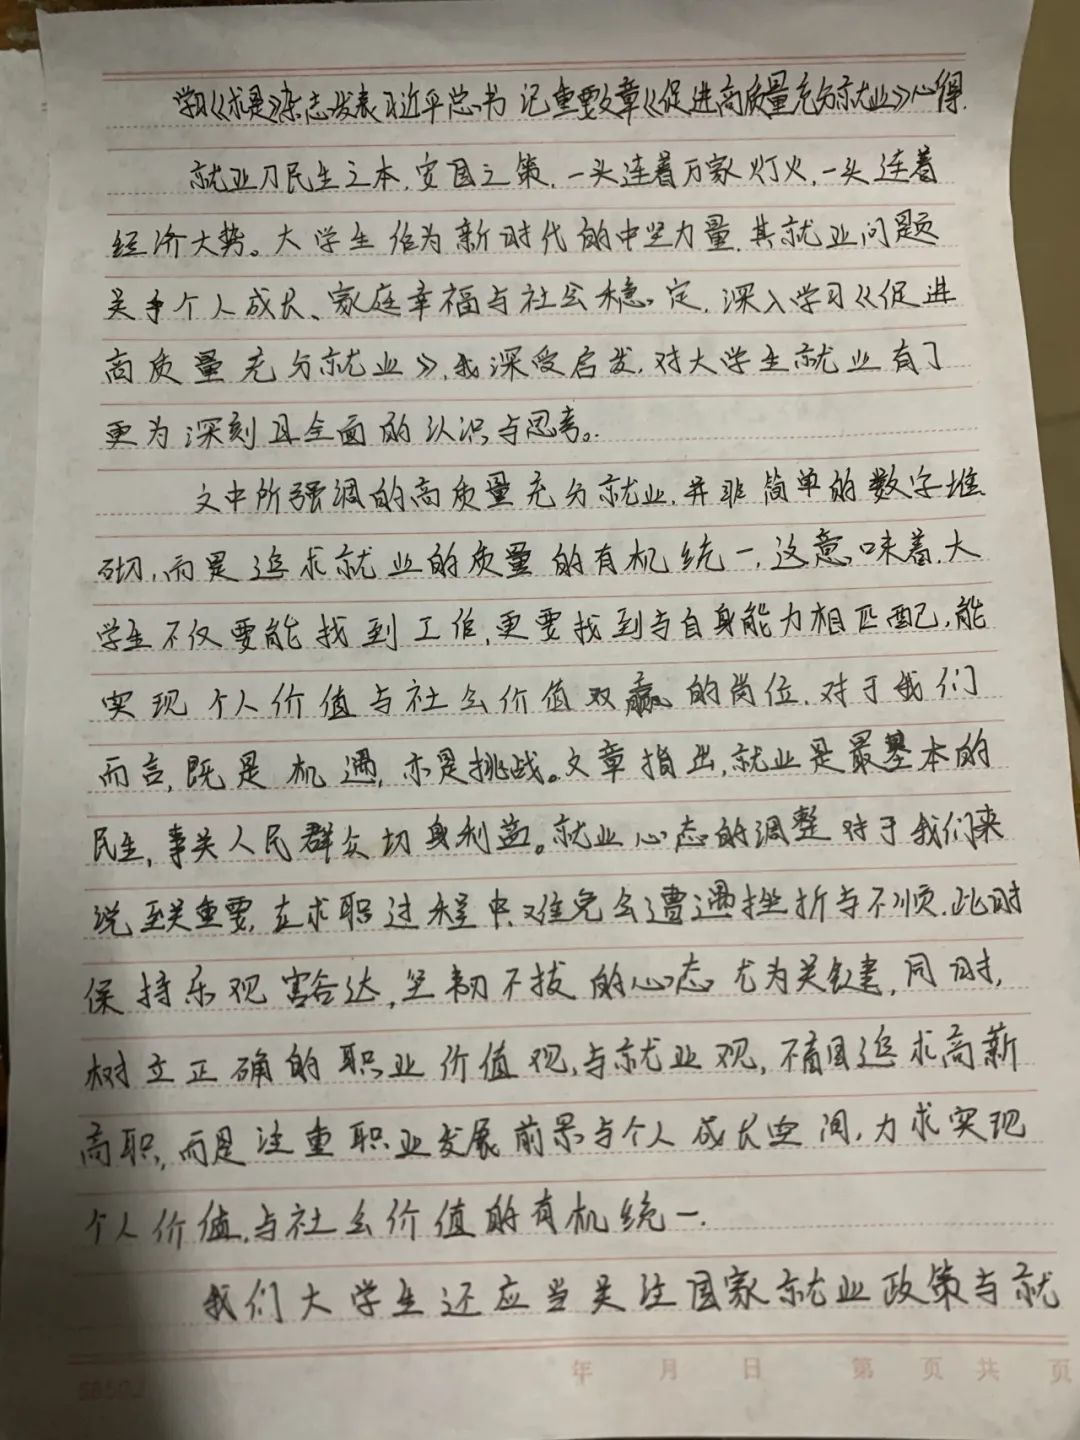 学习《求是》杂志发表习近平总书记重要文章《促进高质量充分就业》心得.
就业乃民生之本,安国之策,一头连着万家灯火,一头连着
经济大势。大学生作为新时代的中坚力量,其就业问题
关乎个人成长、家庭幸福与社会稳定,深入学习《促进
高质量充分就业》,我深受启发,对大学生就业有了
更为深刻且全面的认识与思考。
文中所强调的高质量充分就业,并非简单的数字堆
砌,而是追求就业的质量的有机统一,这意味着,大
学生不仅要能找到工作,更要找到与自身能力相匹配,能
实现个人价值与社会价值双赢的岗位,对于我们
而言,既是机遇,亦是挑战。文章指出,就业是最基本的
民生,事关人民群众切身利益。就业心态的调整对于我们来
说至关重要,在求职过程中,难免会遭遇挫折与不顺,此时
保持乐观豁达,坚韧不拔的心态尤为关键,同时,
树立正确的职业价值观,与就业观,不盲目追求高薪
高职,而是注重职业发展前景与个人成长空间,力求实现
个人价值,与社会价值的有机统一.
我们大学生还应当关注国家就业政策与就
年 月 日 第 页共 页